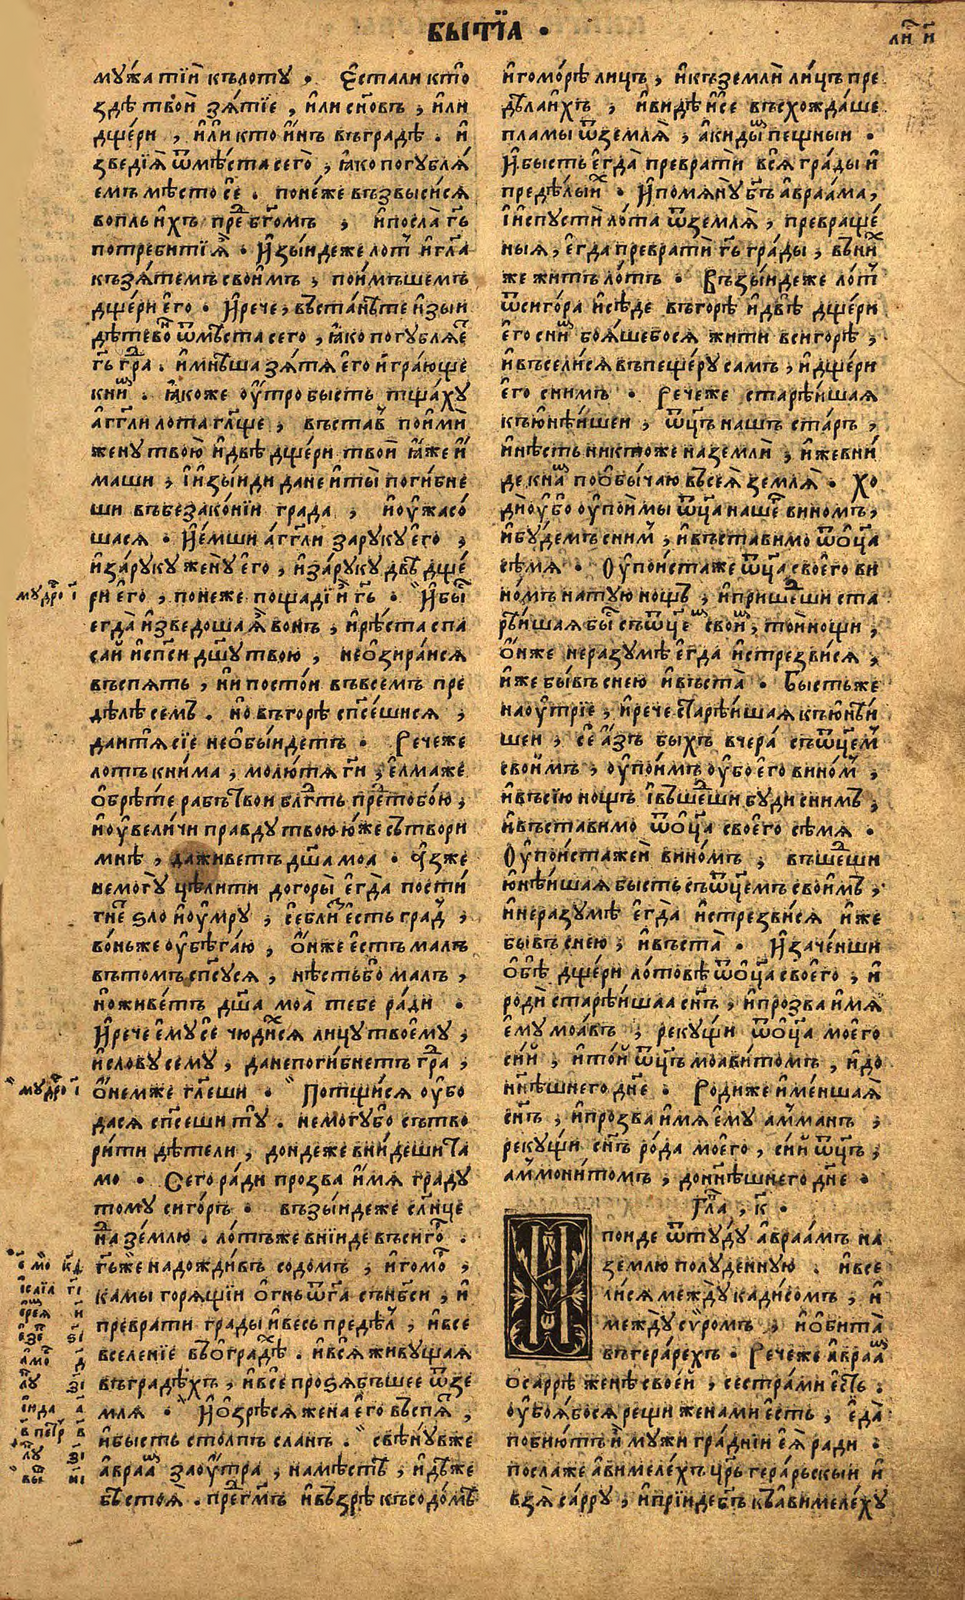 БЫТЇА ·
мужа тїи къ лоту , Єстали кто
здѣ твои зѧтїе , или сн҃овъ , или
дщери , или кто инъ въградѣ . и
зведїѧ ѿмѣста сего , ꙗко погублѧ
емъ мѣсто се . понеже възвысисѧ
вопль ихъ преⷣ бг҃омъ , и посла гь҃
потребити ѧ . Изыидеже лоⷮ и гл҃а
къзѧтемъ своимъ , поимъшемъ
дщери его . И рече , въстанѣте изыи
дѣтево ѿмѣста сего , ꙗко погублѧеⷮ
гь҃ граⷣ . имнѣша зѧтѧ его играюще
книⷨ . ꙗкоже оутро бысть тщахꙋ
аг҃гли лота гл҃ще , въставъ поими
жену твою идвѣ дщери твои ꙗже и
маши , и изыиди да не иты погибне
ши въбезаконїи града , и оужасо
шасѧ . Иемши аг҃гли заруку его ,
изаруку жену его , изаруку двѣ дще
ри его , понеже пощадї и гь҃ . И быⷭ
егда изведоша ѧ вонъ , ирѣста спа
саи испси дш҃у твою , неозираисѧ
въспѧть , ни постои въвсемъ пре
дѣле семъ . но въгорѣ спс҃ешисѧ ,
данⷮѧ сїе необыидетъ . Речеже
лотъ книма , молютѧ гн҃и , елмаже
обрѣте рабъ твои блг҃ть преⷣ тобою ,
иоувеличи правду твою юже сътвори
мнѣ , да живетъ дш҃а моа . Азже
немогу цѣлити догоры егда пости
гнеⷮ зло иоумру , себли есть граⷣ ,
воньже оубѣгаю , ониже естъ малъ
вътомъ спс҃усѧ , нѣстьбо малъ ,
иоживетъ дш҃а моа тебе ради .
И рече ему се чюдихсѧ лицу твоему ,
и слову сему , данепогибнетъ граⷣ ,
онемже гл҃еши . Потщисѧ оубо
дасѧ спс҃еши ту . немогубо сътво
рити дѣтели , дондеже внидеши та
мо . Сего ради прозва имѧ граду
тому сигоръ . възыидеже сл҃нце
на землю . лотъже вниде въсигоⷬ .
гь҃же надождивъ содомъ , игомоⷬ ,
камы горѧщїи огнь ѿга сънбси , и
преврати грады ивесь предѣл , ивсе
вселенїе въградѣⷯ . ивсѧ живущаѧ
въградѣхъ , ивсе прозѧбъшее ѿзе
млѧ . И озрѣсѧ жена его въспѧⷮ ,
ибысть столпъ сланъ . свѣнувже
авраⷨ заоутра , намѣстѣ , идѣже
бѣ стоѧ . преⷣ гм҃ъ ивъзрѣ ксодомѣ
мудроⷭ і
мудроⷭ і
лиⷭ и
игоморѣ лицъ , икъземли лицъ пре
дѣлаихъ , ивидѣ исе въсхождаше
пламы ѿземлѧ , акидыⷨ пещныи .
И бысть егда преврати всѧ грады и
предѣлы иⷯ . И помѧну бг҃ъ авраама ,
и испусти лота ѿземлѧ , превраще
ныѧ , егда преврати гь҃ грады , въниⷯ
же житъ лотъ . Възыидеже лоⷮ
ѿсигора исѣде въгорѣ идвѣ дщери
его сниⷨ боѧшебосѧ жити всигорѣ ,
ивъселисѧ въпещеру самъ , идщери
его снимъ . Речеже старѣишаѧ
къюнѣишеи , ѿц҃ъ нашъ старъ ,
инѣсть никтоже наземли , ижевни
де кнаⷨ пообычаю въсеѧ землѧ . Хо
ди оубо оупоимы ѿц҃а нашеⷢ виномъ ,
ибудемъ сниⷨ , ивъставимо ѿоц҃а
сѣмѧ . Оупоистаже ѿц҃а своего ви
номъ натую нощъ , ипришеⷣши ста
рѣишаѧ быⷭ съѿц҃еⷨ своиⷨ , тои нощи ,
ониже неразумѣ егда истрезвисѧ ,
иже бывъ снею ивъста . Бысть же
наоутрїе , ирече старѣишаѧ къюнѣи
шеи , се азъ быхъ вчера съѿц҃емъ
своимъ , оупоимъ оубо его виноⷨ ,
ивъсїю нощъ івъшеⷣши буди снимъ ,
ивъставимо ѿоц҃а своего сѣмѧ .
Оупоистажеи виномъ , въшеⷣши
юнѣишаѧ бысть съѿц҃емъ своимъ ,
инеразумѣ егда истрезвисѧ иже
бывъ снею , ивъста . И заченши
обѣ дщери лотовѣ ѿоц҃а своего , и
роди старѣишаа сн҃ъ , ипрозва имѧ
ему моавъ , рекущи ѿоц҃а моего
сїи , итои ѿц҃ъ моавитомъ , идо
нн҃ѣшнего дне . Родиже именшаѧ
сн҃ъ , ипрозва имѧ ему амманъ ,
рекущи сн҃ъ рода моего , сии ѿц҃ъ ,
аммонитомъ , донн҃ѣшнего дне .
Гла , к҃ .
Поиде ѿтуду авраамъ на
землю полуденную . ивсе
лисѧ между кадисомъ , и
между суромъ , иобита
въгерарехъ . Речеже авраⷨ
осаррѣ женѣ своеи , сестра ми есть .
оубоѧбосѧ рещи жена ми есть , еда
побиютъ и мужи граднїи еѧ ради .
послаже авимелехъ цр҃ь герарьскыи и
взѧ сарру , иприиде бг҃ъ къавимелеху